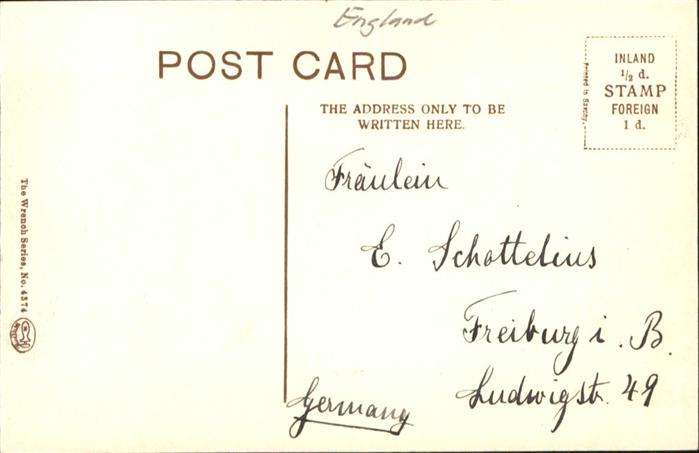 England
POST CARD
INLAND
½ d.
STAMP
FOREIGN
1 d.
Printed in Saxony.
THE ADDRESS ONLY TO BE
WRITTEN HERE.
Fräulein
E. Schottelius
Freiburg i. B.
Ludwigstr. 49
Germany
The Wrench Series, No. 4374